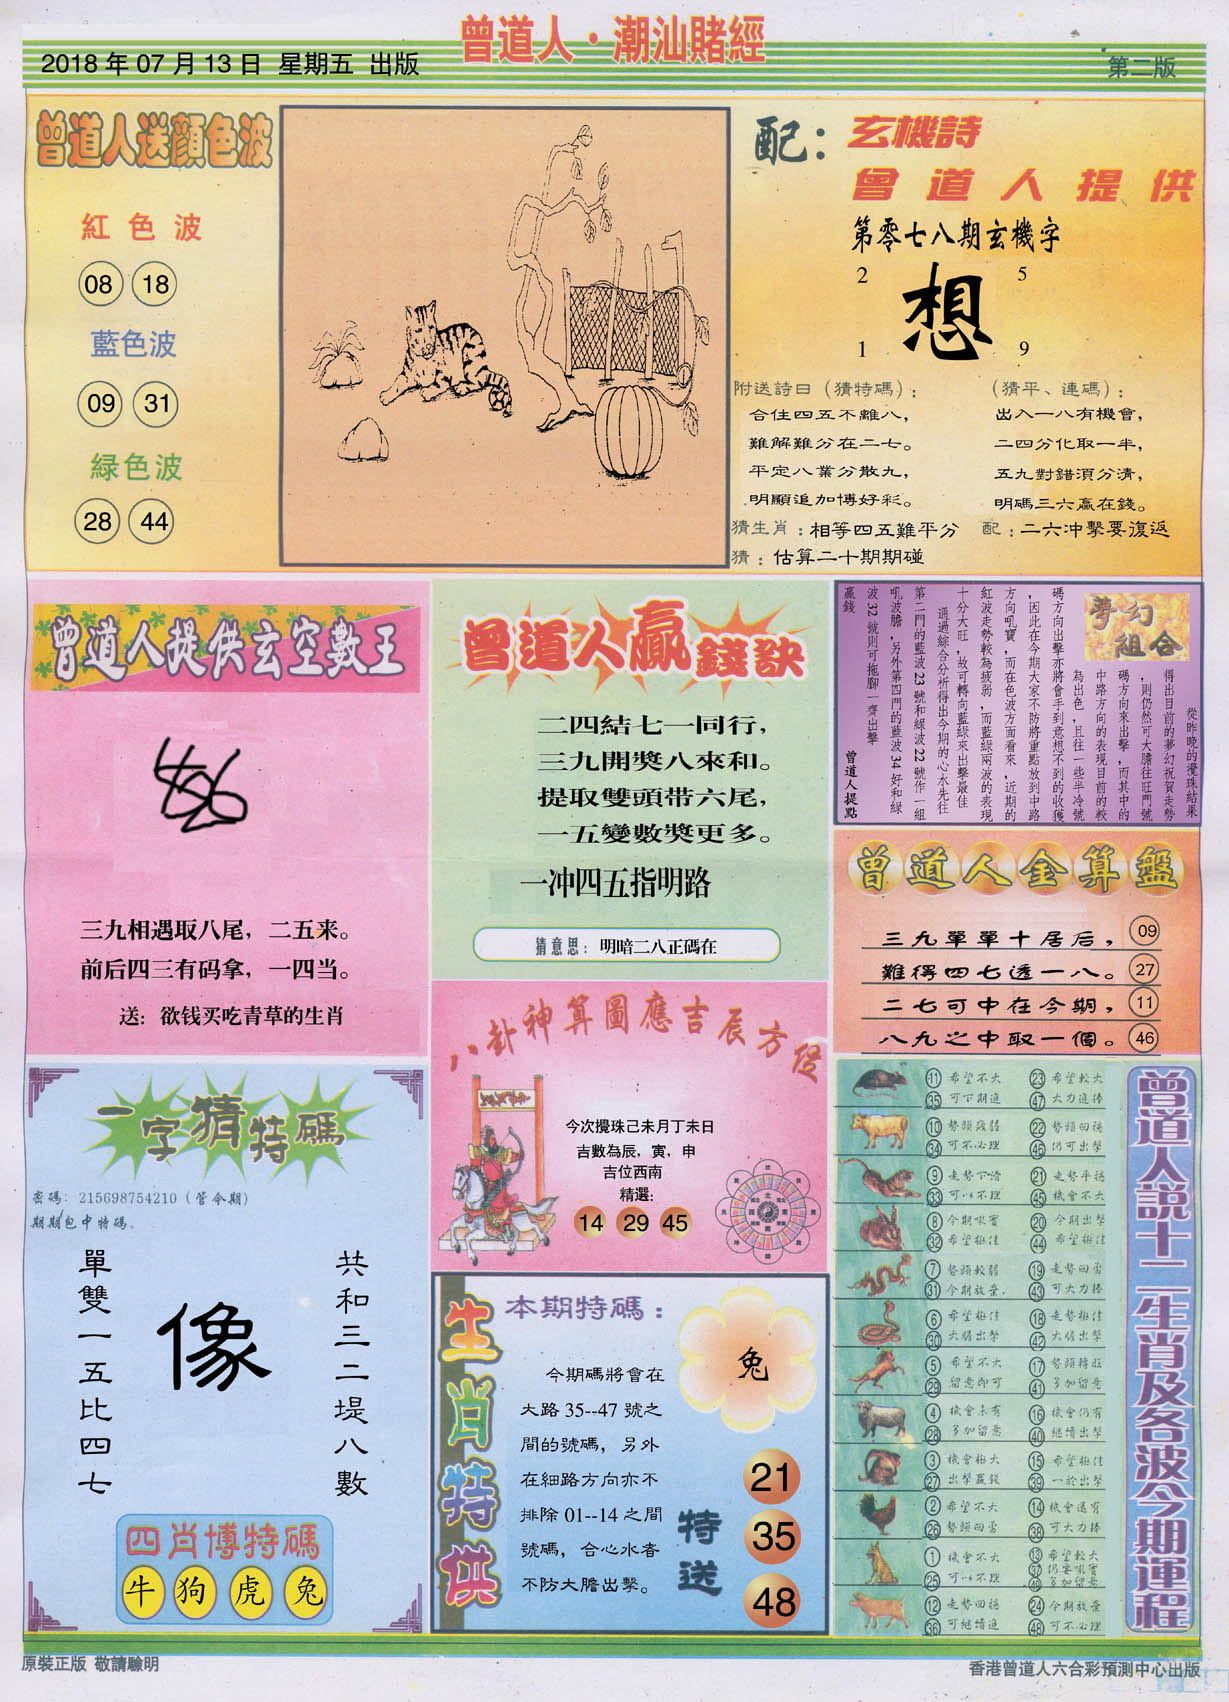 曾道人·潮汕賭經
2018年07月13日 星期五 出版
第二版
曾道人送顏色波
紅色波
08 18
藍色波
09 31
綠色波
28 44
配：玄機詩
曾道人提供
第零七八期玄機字
2 5
想
1 9
附送詩曰（猜特碼）：
合住四五不離八，
難解難分在二七。
平定八業分散九，
明顯追加博好彩。
（猜平、連碼）：
出入一八有機會，
二四分化取一半，
五九對錯須分清，
明碼三六贏在錢。
猜生肖：相等四五難平分
配：二六冲擊要復返
猜：估算二十期期碰
曾道人提供玄空數王
三九相遇取八尾，二五来。
前后四三有码拿，一四当。
送：欲钱买吃青草的生肖
曾道人贏錢訣
二四結七一同行，
三九開獎八來和。
提取雙頭带六尾，
一五變數獎更多。
一冲四五指明路
猜意思：明暗二八正碼在
夢幻組合
從昨晚的攪珠結果
得出目前的夢幻祝賀走勢
，則仍然可大膽往旺門號
碼方向來出擊，而其中的
中路方向的表現目前的較
為出色，且往一些半冷號
碼方向出擊亦將會手到意想不到的收獲
，因此在今期大家不防將重點放到中路
方向吼寶，而在色波方面看來，近期的
紅波走勢較為疲弱，而藍綠兩波的表現
十分大旺，故可轉向藍綠來出擊最佳
通過綜合分析得出今期的心水先往
第二門的藍波23號和綠波22號作一組
吼波膽，另外第四門的藍波34好和綠
波32號則可拖腳一齊出擊
贏錢
曾道人提點
曾道人金算盤
三九單單十居后， 09
難得四七透一八。 27
二七可中在今期， 11
八九之中取一個。 46
八卦神算圖應吉辰方位
今次攪珠己未月丁未日
吉數為辰，寅，申
吉位西南
精選：
14 29 45
一字猜特碼
密碼：215698754210（管今期）
期期包中特碼。
單雙一五比四七
像
共和三二堤八數
四肖博特碼
牛 狗 虎 兔
生肖特供
本期特碼：
兔
今期碼將會在
大路35--47號之
間的號碼，另外
在細路方向亦不
排除01--14之間
號碼，合心水者
不防大膽出擊。
特送
21
35
48
曾道人說十二生肖及各波今期運程
11 希望不大 23 希望較大
35 可下期進 47 大力進捧
10 勢頭疲弱 22 勢頭回穩
34 可不必理 46 仍可出擊
9 走勢下滑 21 走勢平穩
33 可以不理 45 機會不大
8 今期吼寶 20 今期出擊
32 希望極佳 44 希望極佳
7 勢頭較弱 19 走勢回勇
31 今期放棄. 43 可大力捧
6 希望極佳 18 走勢極佳
30 大膽出擊 42 大膽出擊
5 希望不大 17 勢頭轉旺
29 留意即可 41 多加留意
4 機會未有 16 機會仍有
28 多加留意 40 繼續出擊
3 機會極大 15 希望極佳
27 出擊贏錢 39 一於出擊
2 希望不大 14 機會還有
26 勢頭回勇 38 可大力捧
1 機會不大 13 希望較大
25 可以不理 37 仍寄吼寶
49 多加留意
12 走勢回穩 24 今期放棄
36 可繼續追 48 可不必理
原裝正版 敬請驗明
香港曾道人六合彩預測中心出版